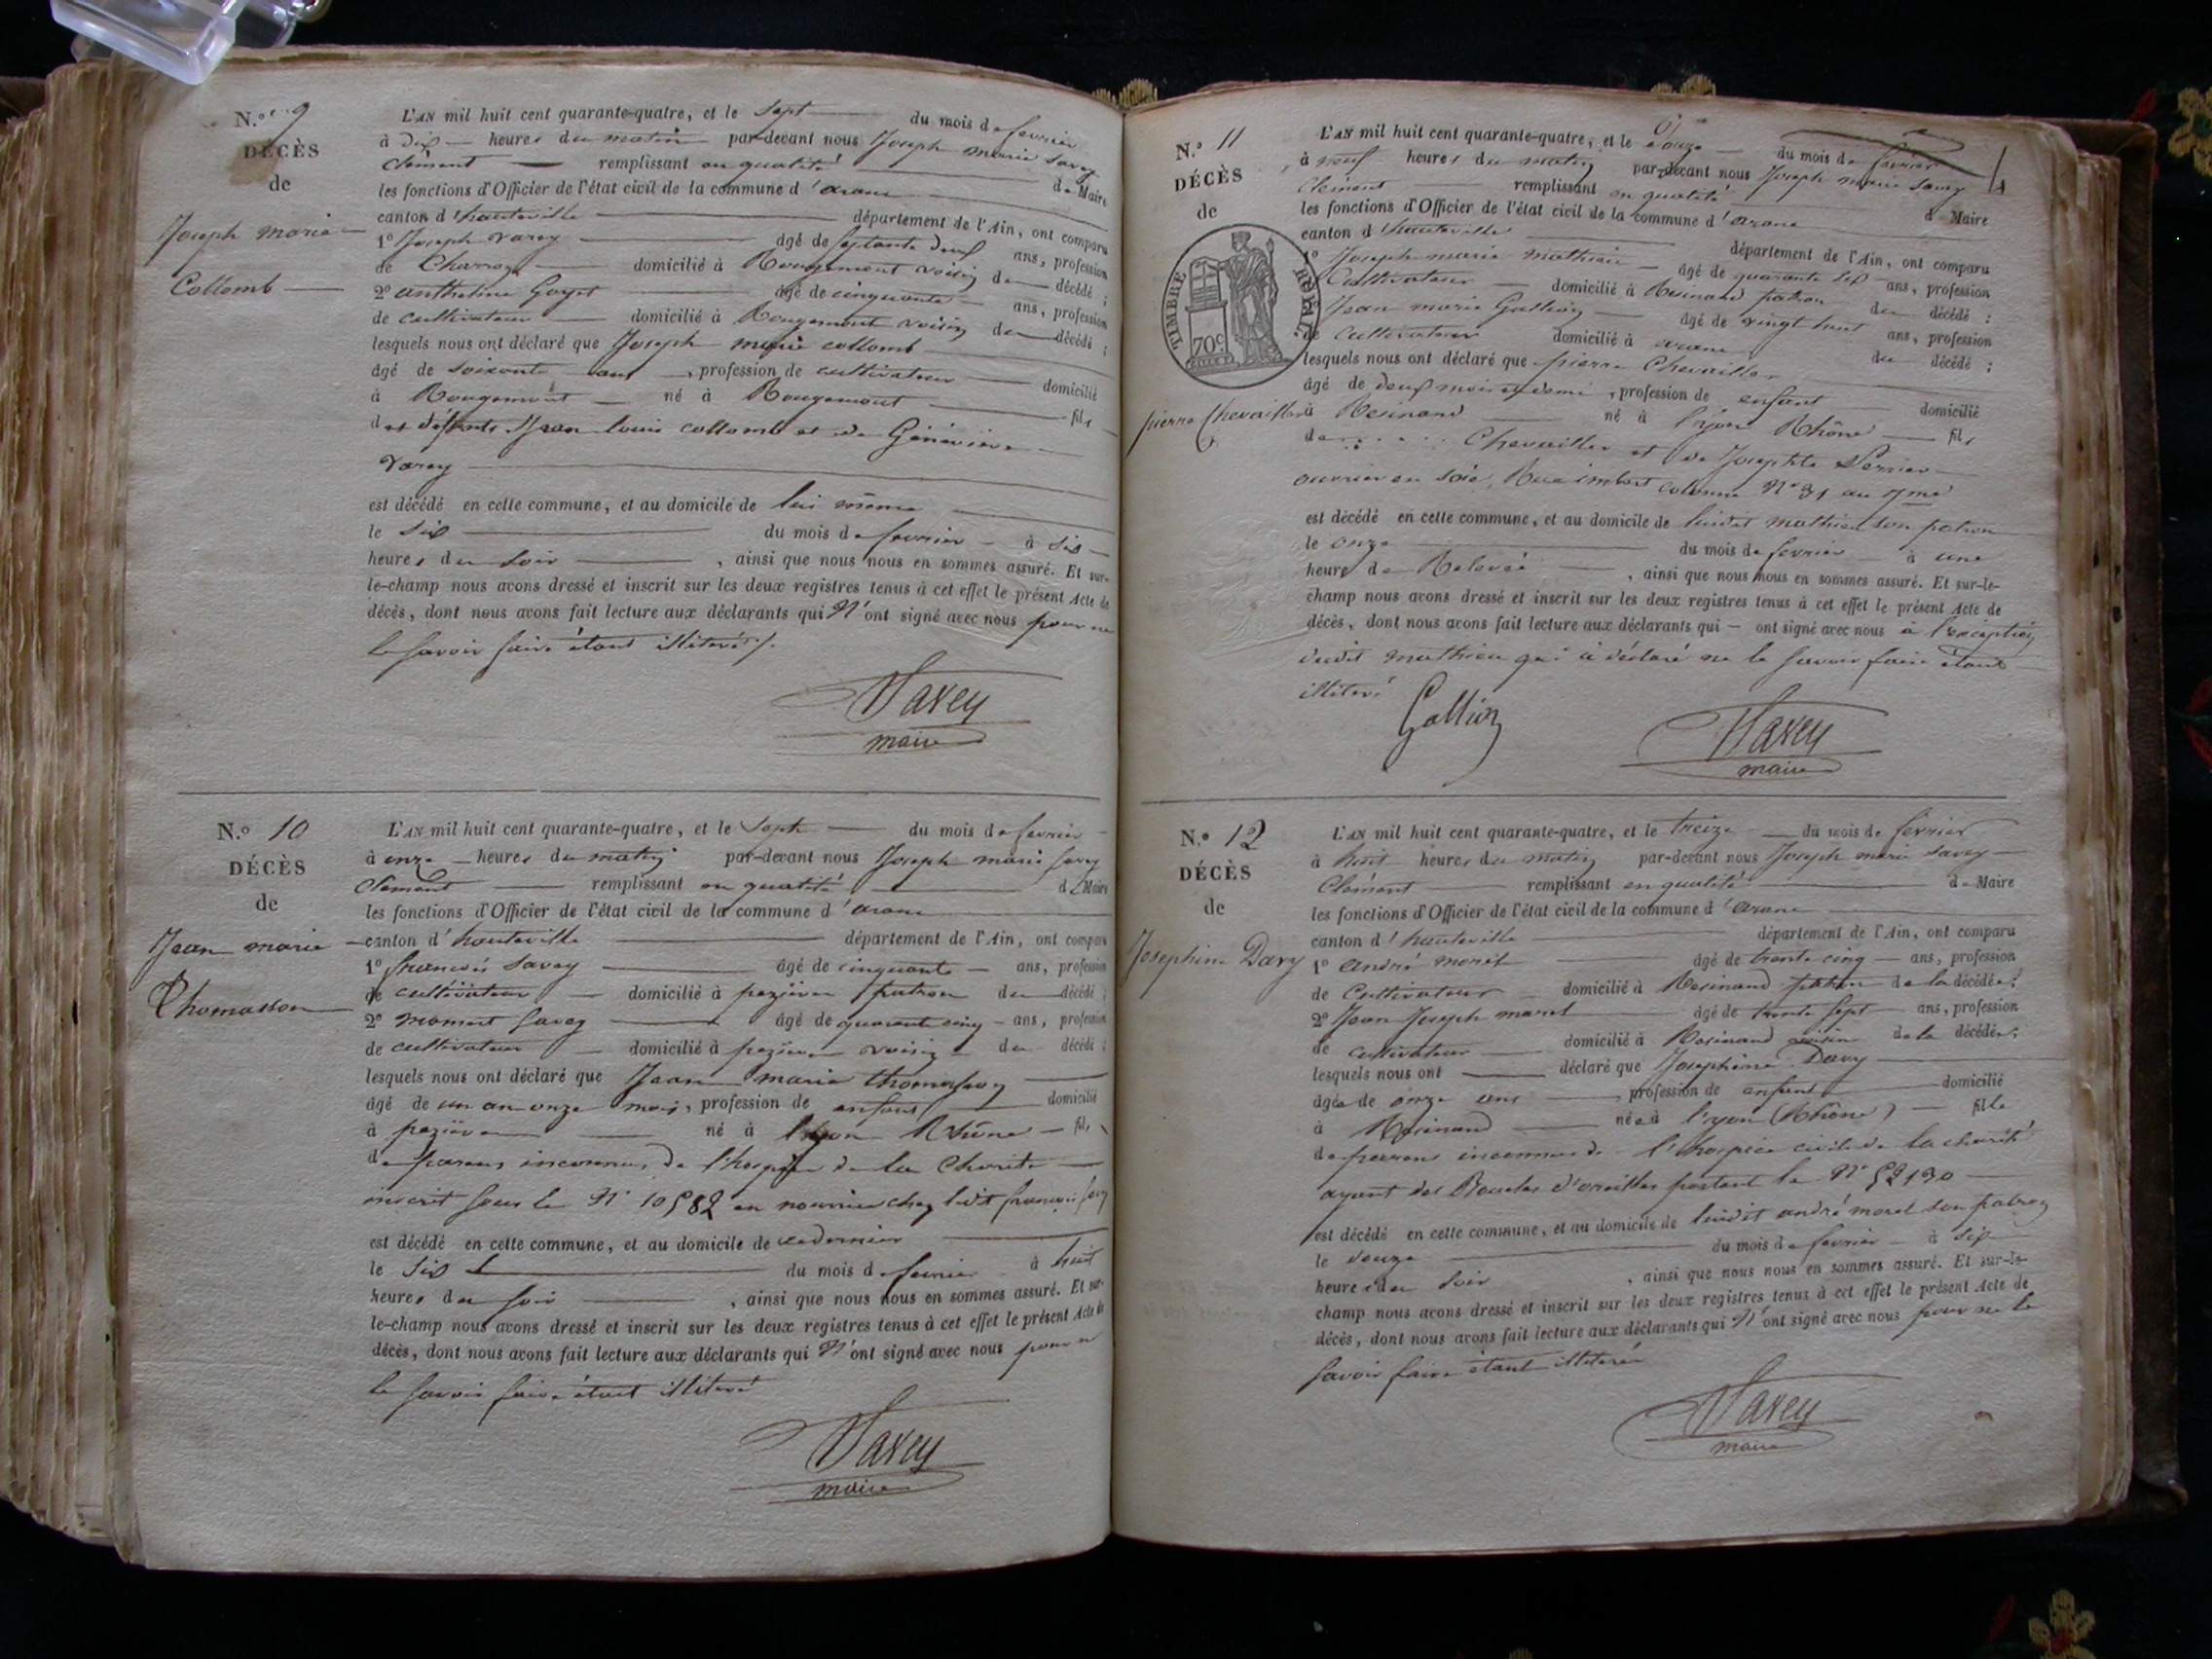 N.º 9
DÉCÈS
de
Joseph marie
Collomb
L'AN mil huit cent quarante-quatre, et le sept du mois de fevrier
à dix heures du matin par-devant nous Joseph marie Savey
Clément remplissant en qualité de Maire
les fonctions d'Officier de l'état civil de la commune d'arane
canton d'hauteville département de l'Ain, ont comparu
1º Joseph varey âgé de septante deux ans, profession
de domicilié à Rougemont voisin du décédé ;
2º anthelme Goyet âgé de cinquante ans, profession
de cultivateur domicilié à Rougemont voisin du décédé ;
lesquels nous ont déclaré que Joseph marie collomb
âgé de soixante ans, profession de cultivateur domicilié
à Rougemont né à Rougemont fils
des défunts Jean louis collomb et de Géneviève
varey
est décédé en cette commune, et au domicile de lui même
le six du mois de fevrier à six
heures du soir, ainsi que nous nous en sommes assuré. Et sur-
le-champ nous avons dressé et inscrit sur les deux registres tenus à cet effet le présent Acte de
décès, dont nous avons fait lecture aux déclarants qui N'ont signé avec nous pour ne
le savoir faire étant
Savey
maire
N.º 10
DÉCÈS
de
Jean marie
Thomasson
L'AN mil huit cent quarante-quatre, et le sept du mois de fevrier
à onze heures du matin par-devant nous Joseph marie Savey
Clément remplissant en qualité de Maire
les fonctions d'Officier de l'état civil de la commune d'arane
canton d'hauteville département de l'Ain, ont comparu
1º françois Savey âgé de cinquante ans, profession
de cultivateur domicilié à pezieres patron du décédé ;
2º Savey âgé de quarante cinq ans, profession
de cultivateur domicilié à pezieres voisin du décédé ;
lesquels nous ont déclaré que Jean marie thomasson
âgé de un an onze mois, profession de enfant domicilié
à pezieres né à lyon Rhône fils
de parens inconnus de l'hospice de la Charité
inscrit sous le Nº 10582 en nourrice chez ledit françois Savey
est décédé en cette commune, et au domicile de ce dernier
le six du mois de fevrier à huit
heures du soir, ainsi que nous nous en sommes assuré. Et sur-
le-champ nous avons dressé et inscrit sur les deux registres tenus à cet effet le présent Acte de
décès, dont nous avons fait lecture aux déclarants qui N'ont signé avec nous pour ne
le savoir faire étant illiteré
Savey
maire
N.º 11
DÉCÈS
de
TIMBRE ROYAL
70c
pierre Chevailler
L'AN mil huit cent quarante-quatre, et le douze du mois de fevrier
à neuf heures du matin par-devant nous Joseph marie Savey
Clément remplissant en qualité de Maire
les fonctions d'Officier de l'état civil de la commune d'arane
canton d'hauteville département de l'Ain, ont comparu
1º Joseph marie mathieu âgé de quarante six ans, profession
Cultivateur domicilié à Resinand patron du décédé ;
Jean marie Gallion âgé de vingt huit ans, profession
de cultivateur domicilié à arane du décédé ;
lesquels nous ont déclaré que pierre Chevailler
âgé de deux mois et demi, profession de enfant domicilié
à Resinand né à lyon Rhône fils
de Chevailler et de Josephte Perrier
ouvrier en soie, Rue imbert colomne Nº 31 au
est décédé en cette commune, et au domicile de dudit mathieu son patron
le onze du mois de fevrier à une
heure de Relevée, ainsi que nous nous en sommes assuré. Et sur-le-
champ nous avons dressé et inscrit sur les deux registres tenus à cet effet le présent Acte de
décès, dont nous avons fait lecture aux déclarants qui — ont signé avec nous à l'exception
dudit mathieu qui à déclaré ne le savoir faire étant
illiteré
Gallion
Savey
maire
N.º 12
DÉCÈS
de
Josephine Davy
L'AN mil huit cent quarante-quatre, et le treize du mois de fevrier
à huit heures du matin par-devant nous Joseph marie Savey
Clément remplissant en qualité de Maire
les fonctions d'Officier de l'état civil de la commune d'arane
canton d'hauteville département de l'Ain, ont comparu
1º andré morel âgé de trente cinq ans, profession
de Cultivateur domicilié à Resinand patron de la décédée ;
2º Jean Joseph morel âgé de trente sept ans, profession
de cultivateur domicilié à Resinand voisin de la décédée ;
lesquels nous ont déclaré que Josephine Davy
âgée de onze ans, profession de enfant domicilié
à Resinand née à lyon (Rhône) fille
de parens inconnus de l'hospice civil de la charité
ayant des Boucles d'oreilles portant le Nº 52130
est décédé en cette commune, et au domicile de dudit andré morel son patron
le douze du mois de fevrier à six
heures du soir, ainsi que nous nous en sommes assuré. Et sur-le-
champ nous avons dressé et inscrit sur les deux registres tenus à cet effet le présent Acte de
décès, dont nous avons fait lecture aux déclarants qui N'ont signé avec nous pour ne le
savoir faire étant illiteré
Savey
maire